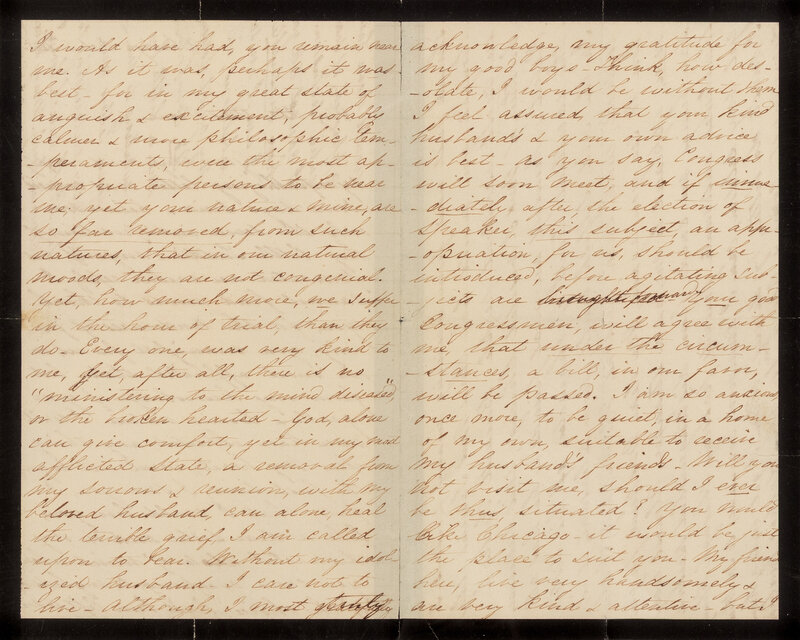 I would have had, you remain near
me. As it was, perhaps it was
best – for in my great state of
anguish & excitement, probably
calmer & more philosophic tem-
-peraments, were the most ap-
-propriate persons to be near
me, yet your nature & mine, are
so far removed, from such
natures, that in our natural
moods, they are not congenial.
Yet, how much more, we suffer
in the hour of trial, than they
do – Every one, was very kind to
me, yet, after all, there is no
"ministering to the mind diseased"
or the broken hearted – God, alone
can give comfort, yet in my most
afflicted state, a removal from
my sorrows & reunion, with my
beloved husband, can alone, heal
the terrible grief I am called
upon to bear. Without my idol-
-ized husband – I care not to
live – although, I most gratefully
acknowledge, my gratitude for
my good boys – Think, how des-
-olate, I would be without them
I feel assured that your kind
husband's & your own advice
is best – as you say, Congress
will soon meet, and if imme-
-diately, after, the election of
Speaker, this subject, an appro-
-opriation, for us, should be
introduced, before agitating sub-
-jects are brought forward your good
Congressmen, will agree with
me, that under the circum-
-stances, a bill, in our favor,
will be passed. I am so anxious,
once more, to be quiet, in a home
of my own, suitable to receive
my husband's friends – Will you
not visit me, should I ever
be thus situated? You would
like Chicago – it would be just
the place to suit you – My friends
here, live very handsomely &
are very kind & attentive – but I